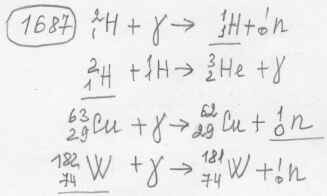 1687 ²₁H + γ → ¹₁H + ¹₀n
²₁H + ¹₁H → ³₂He + γ
⁶³₂₉Cu + γ → ⁶²₂₉Cu + ¹₀n
¹⁸²₇₄W + γ → ¹⁸¹₇₄W + ¹₀n